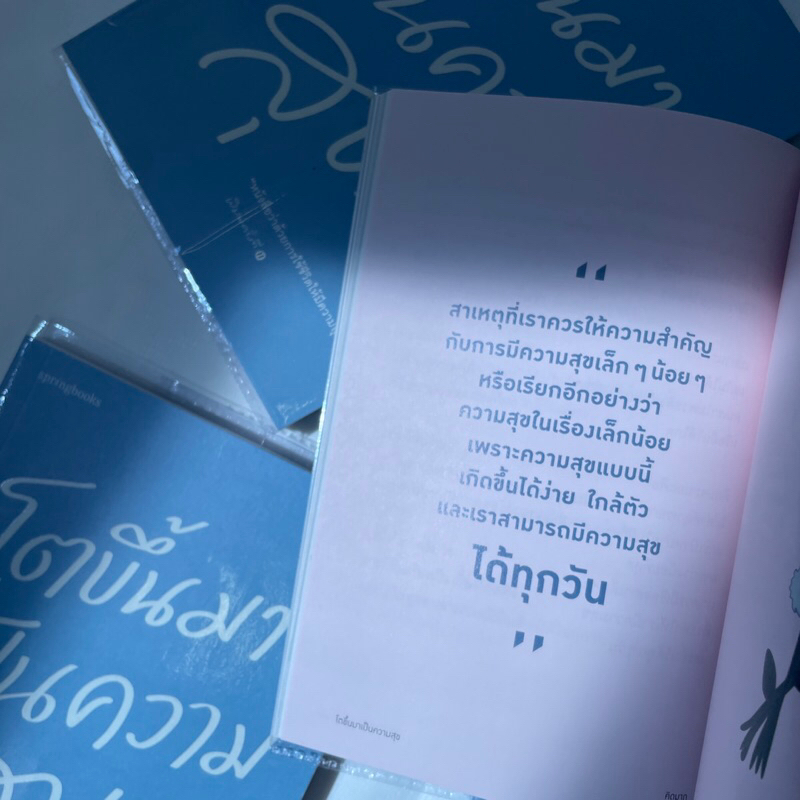 นมา
นค
สุข
springbooks
โตขึ้นมา
ป็นความ
“
สาเหตุที่เราควรให้ความสำคัญ
กับการมีความสุขเล็ก ๆ น้อย ๆ
หรือเรียกอีกอย่างว่า
ความสุขในเรื่องเล็กน้อย
เพราะความสุขแบบนี้
เกิดขึ้นได้ง่าย ใกล้ตัว
และเราสามารถมีความสุข
ได้ทุกวัน
”
โตขึ้นมาเป็นความสุข
คิดมาก